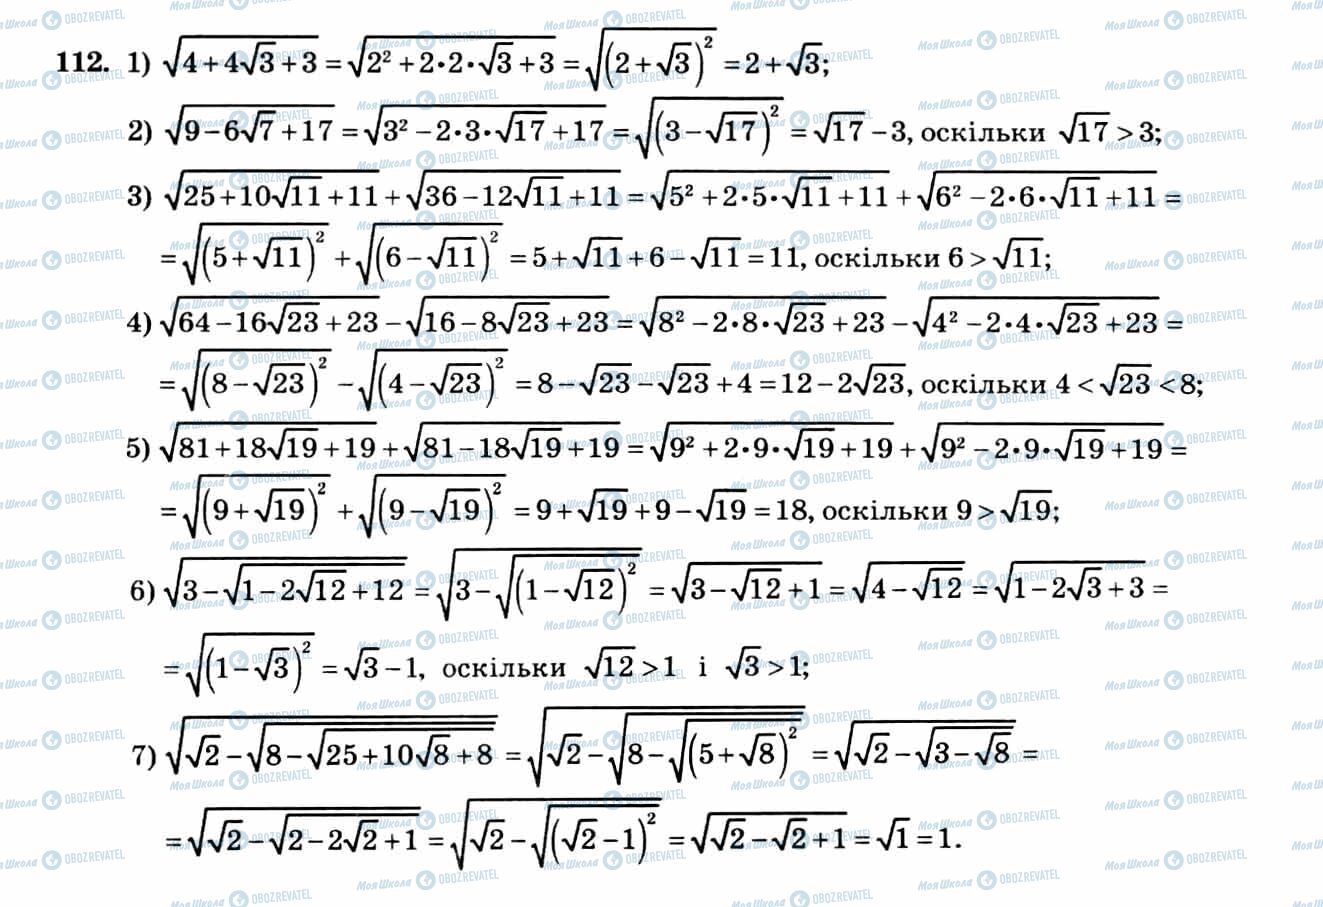 112. 1) √(4+4√3+3) = √(2²+2•2•√3+3) = √((2+√3)²) = 2+√3;
2) √(9−6√7+17) = √(3²−2•3•√17+17) = √((3−√17)²) = √17−3, оскільки √17 > 3;
3) √(25+10√11+11) + √(36−12√11+11) = √(5²+2•5•√11+11) + √(6²−2•6•√11+11) =
= √((5+√11)²) + √((6−√11)²) = 5+√11+6−√11 = 11, оскільки 6 > √11;
4) √(64−16√23+23) − √(16−8√23+23) = √(8²−2•8•√23+23) − √(4²−2•4•√23+23) =
= √((8−√23)²) − √((4−√23)²) = 8−√23−√23+4 = 12−2√23, оскільки 4 < √23 < 8;
5) √(81+18√19+19) + √(81−18√19+19) = √(9²+2•9•√19+19) + √(9²−2•9•√19+19) =
= √((9+√19)²) + √((9−√19)²) = 9+√19+9−√19 = 18, оскільки 9 > √19;
6) √(3−√(1−2√12+12)) = √(3−√((1−√12)²)) = √(3−√12+1) = √(4−√12) = √(1−2√3+3) =
= √((1−√3)²) = √3−1, оскільки √12 > 1 і √3 > 1;
7) √(√2−√(8−√(25+10√8+8))) = √(√2−√(8−√((5+√8)²))) = √(√2−√(3−√8)) =
= √(√2−√(2−2√2+1)) = √(√2−√((√2−1)²)) = √(√2−√2+1) = √1 = 1.
Моя Школа OBOZREVATEL